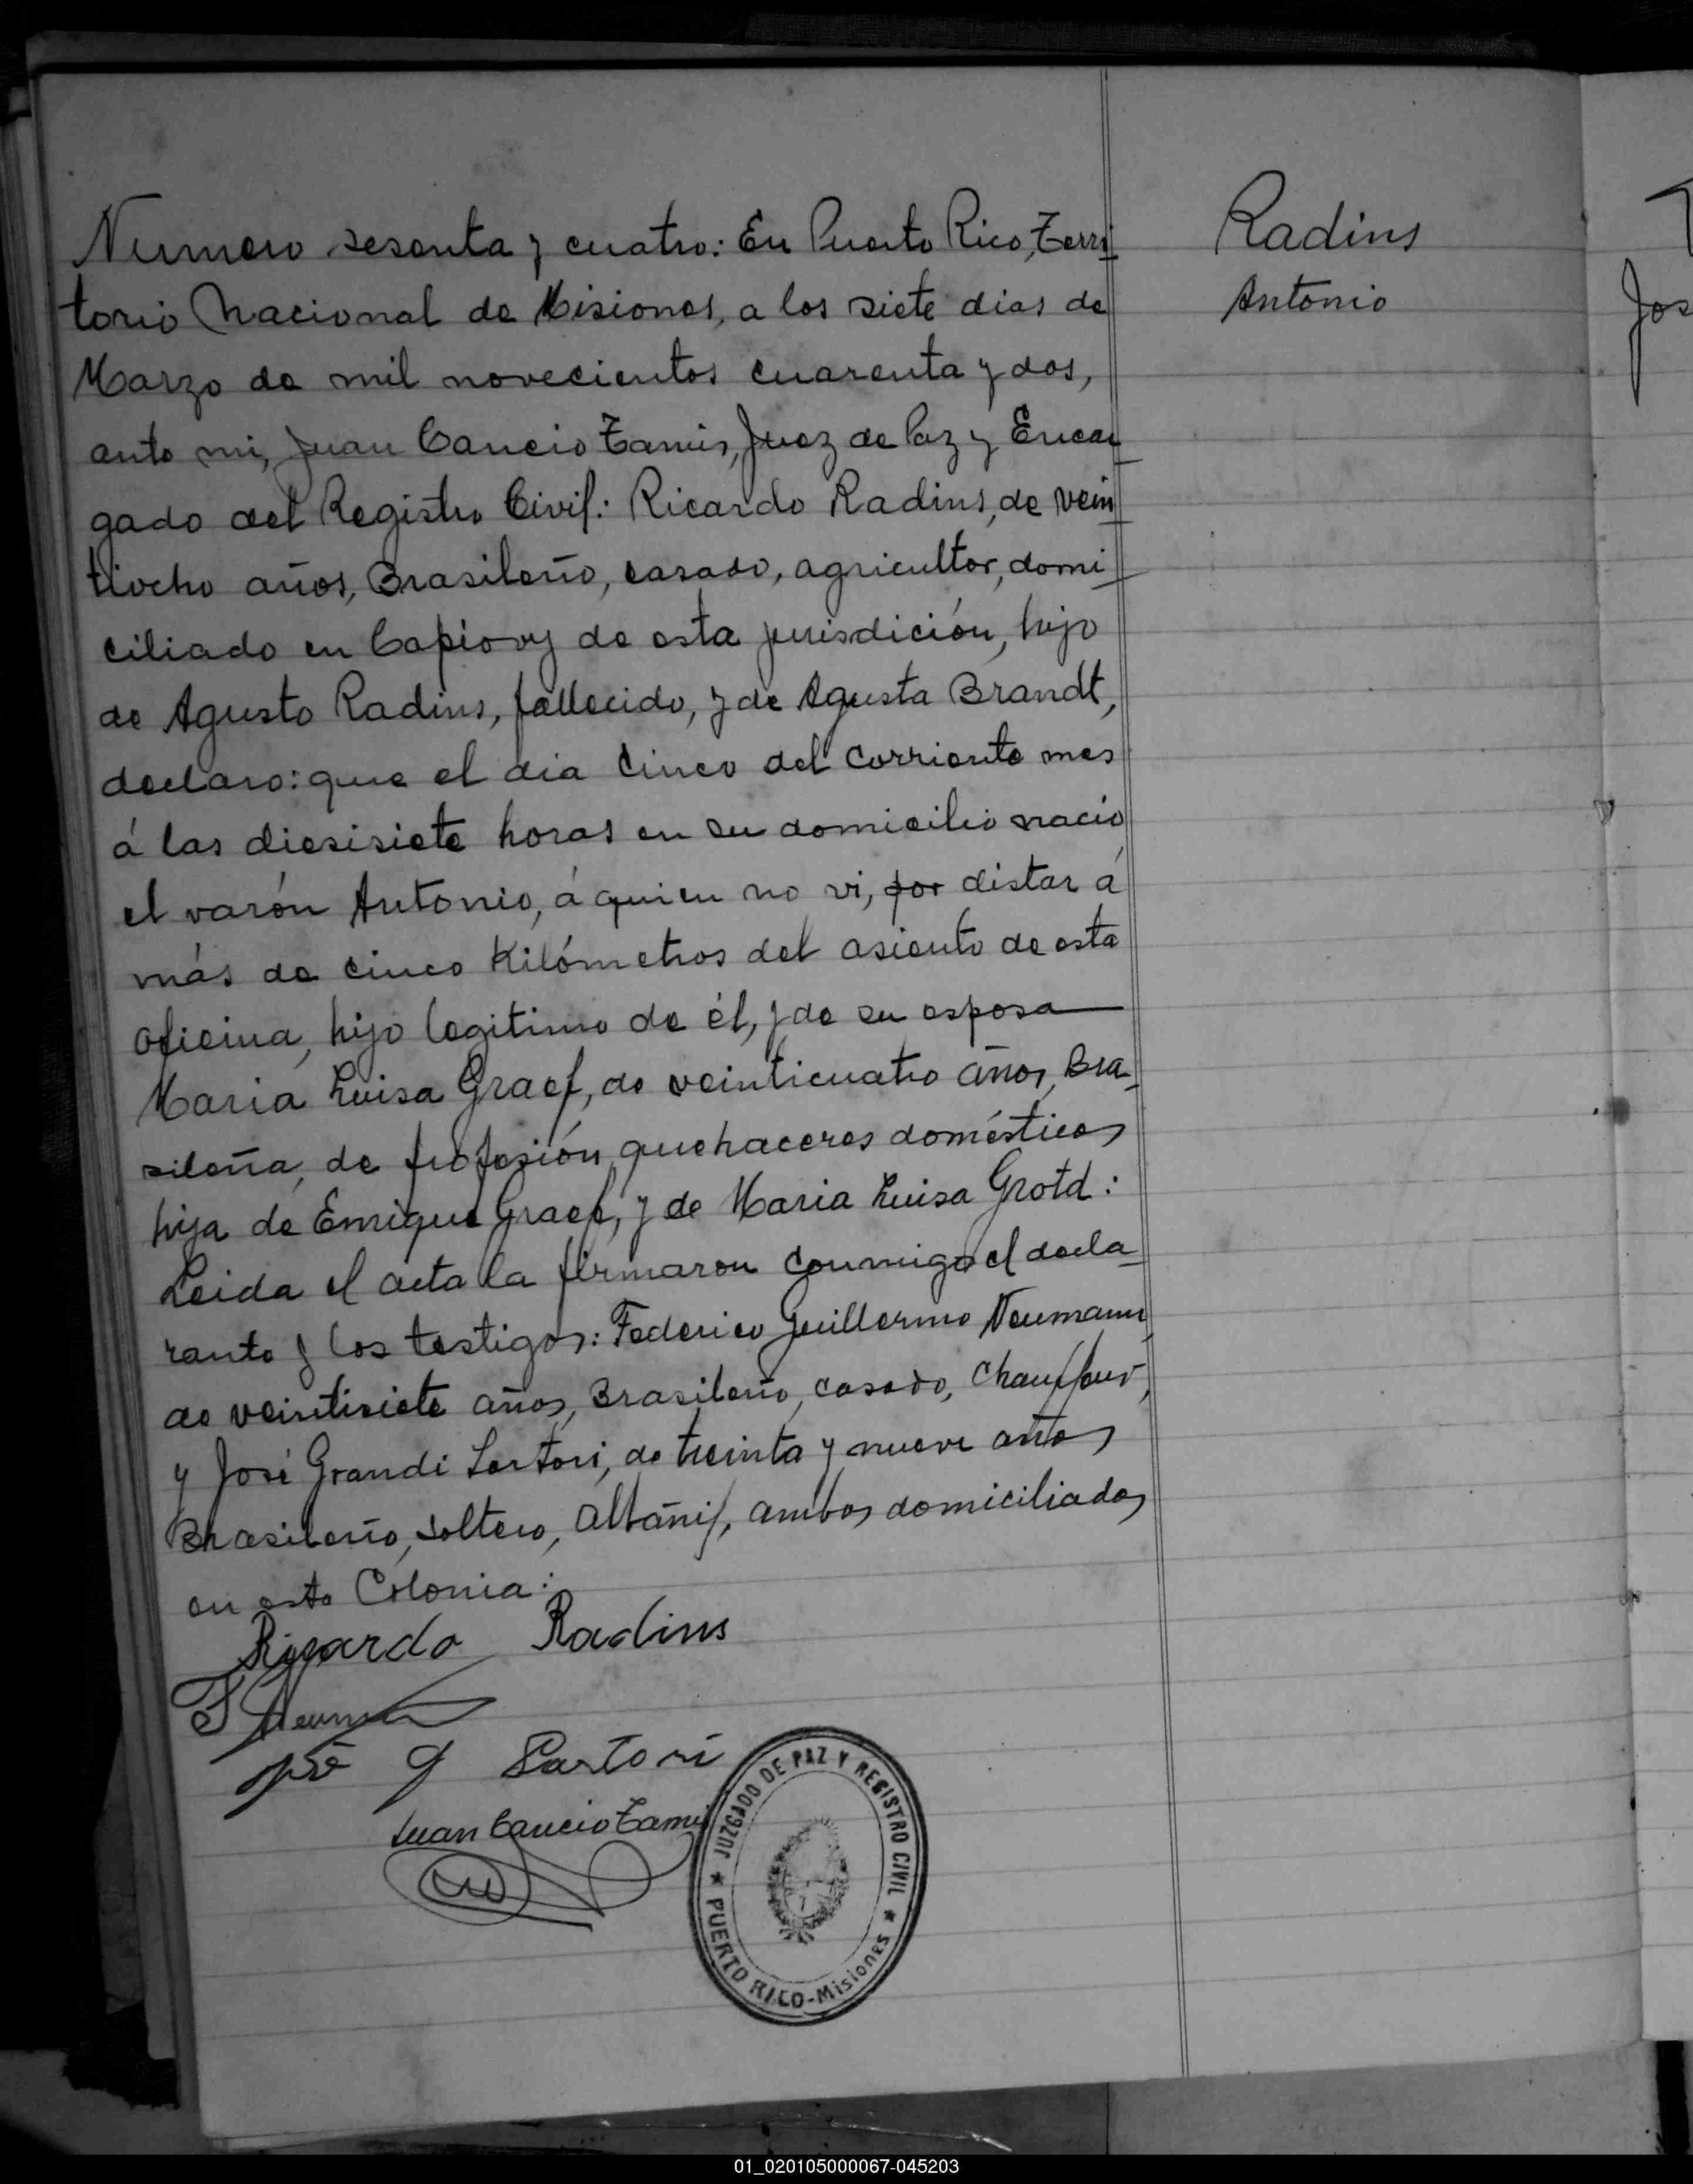 Numero sesenta y cuatro: En Puerto Rico, Terri
torio Nacional de Misiones, a los siete dias de
Marzo de mil novecientos cuarenta y dos,
ante mi, Juan Cancio Tamis, Juez de Paz y Encar
gado del Registro Civil: Ricardo Radins, de vein
tiocho años, Brasileño, casado, agricultor, domi
ciliado en Capiovy de esta jurisdición, hijo
de Agusto Radins, fallecido, y de Agusta Brandt,
declaro: que el dia cinco del corriente mes
á las diesisiete horas en su domicilio nació
el varón Antonio, á quien no vi, por distar á
más de cinco Kilómetros del asiento de esta
oficina, hijo legitimo de él, y de su esposa
Maria Luisa Graef, de veinticuatro años, Bra
sileña, de profesión quehaceres domésticos
hija de Enrique Graef, y de Maria Luisa Grotd:
Leida el acta la firmaron conmigo el decla
rante y los testigos: Federico Guillermo Neumann,
de veintisiete años, Brasileño, casado, Chauffeur,
y José Grandi Sartori, de treinta y nueve años
Brasileño, soltero, Albañil, ambos domiciliados
en esta Colonia:
Ricardo Radins
F Neuman
José G Sartori
Juan Cancio Tamis
JUZGADO DE PAZ Y REGISTRO CIVIL
PUERTO RICO-Misiones
Radins
Antonio
Jos
01_020105000067-045203